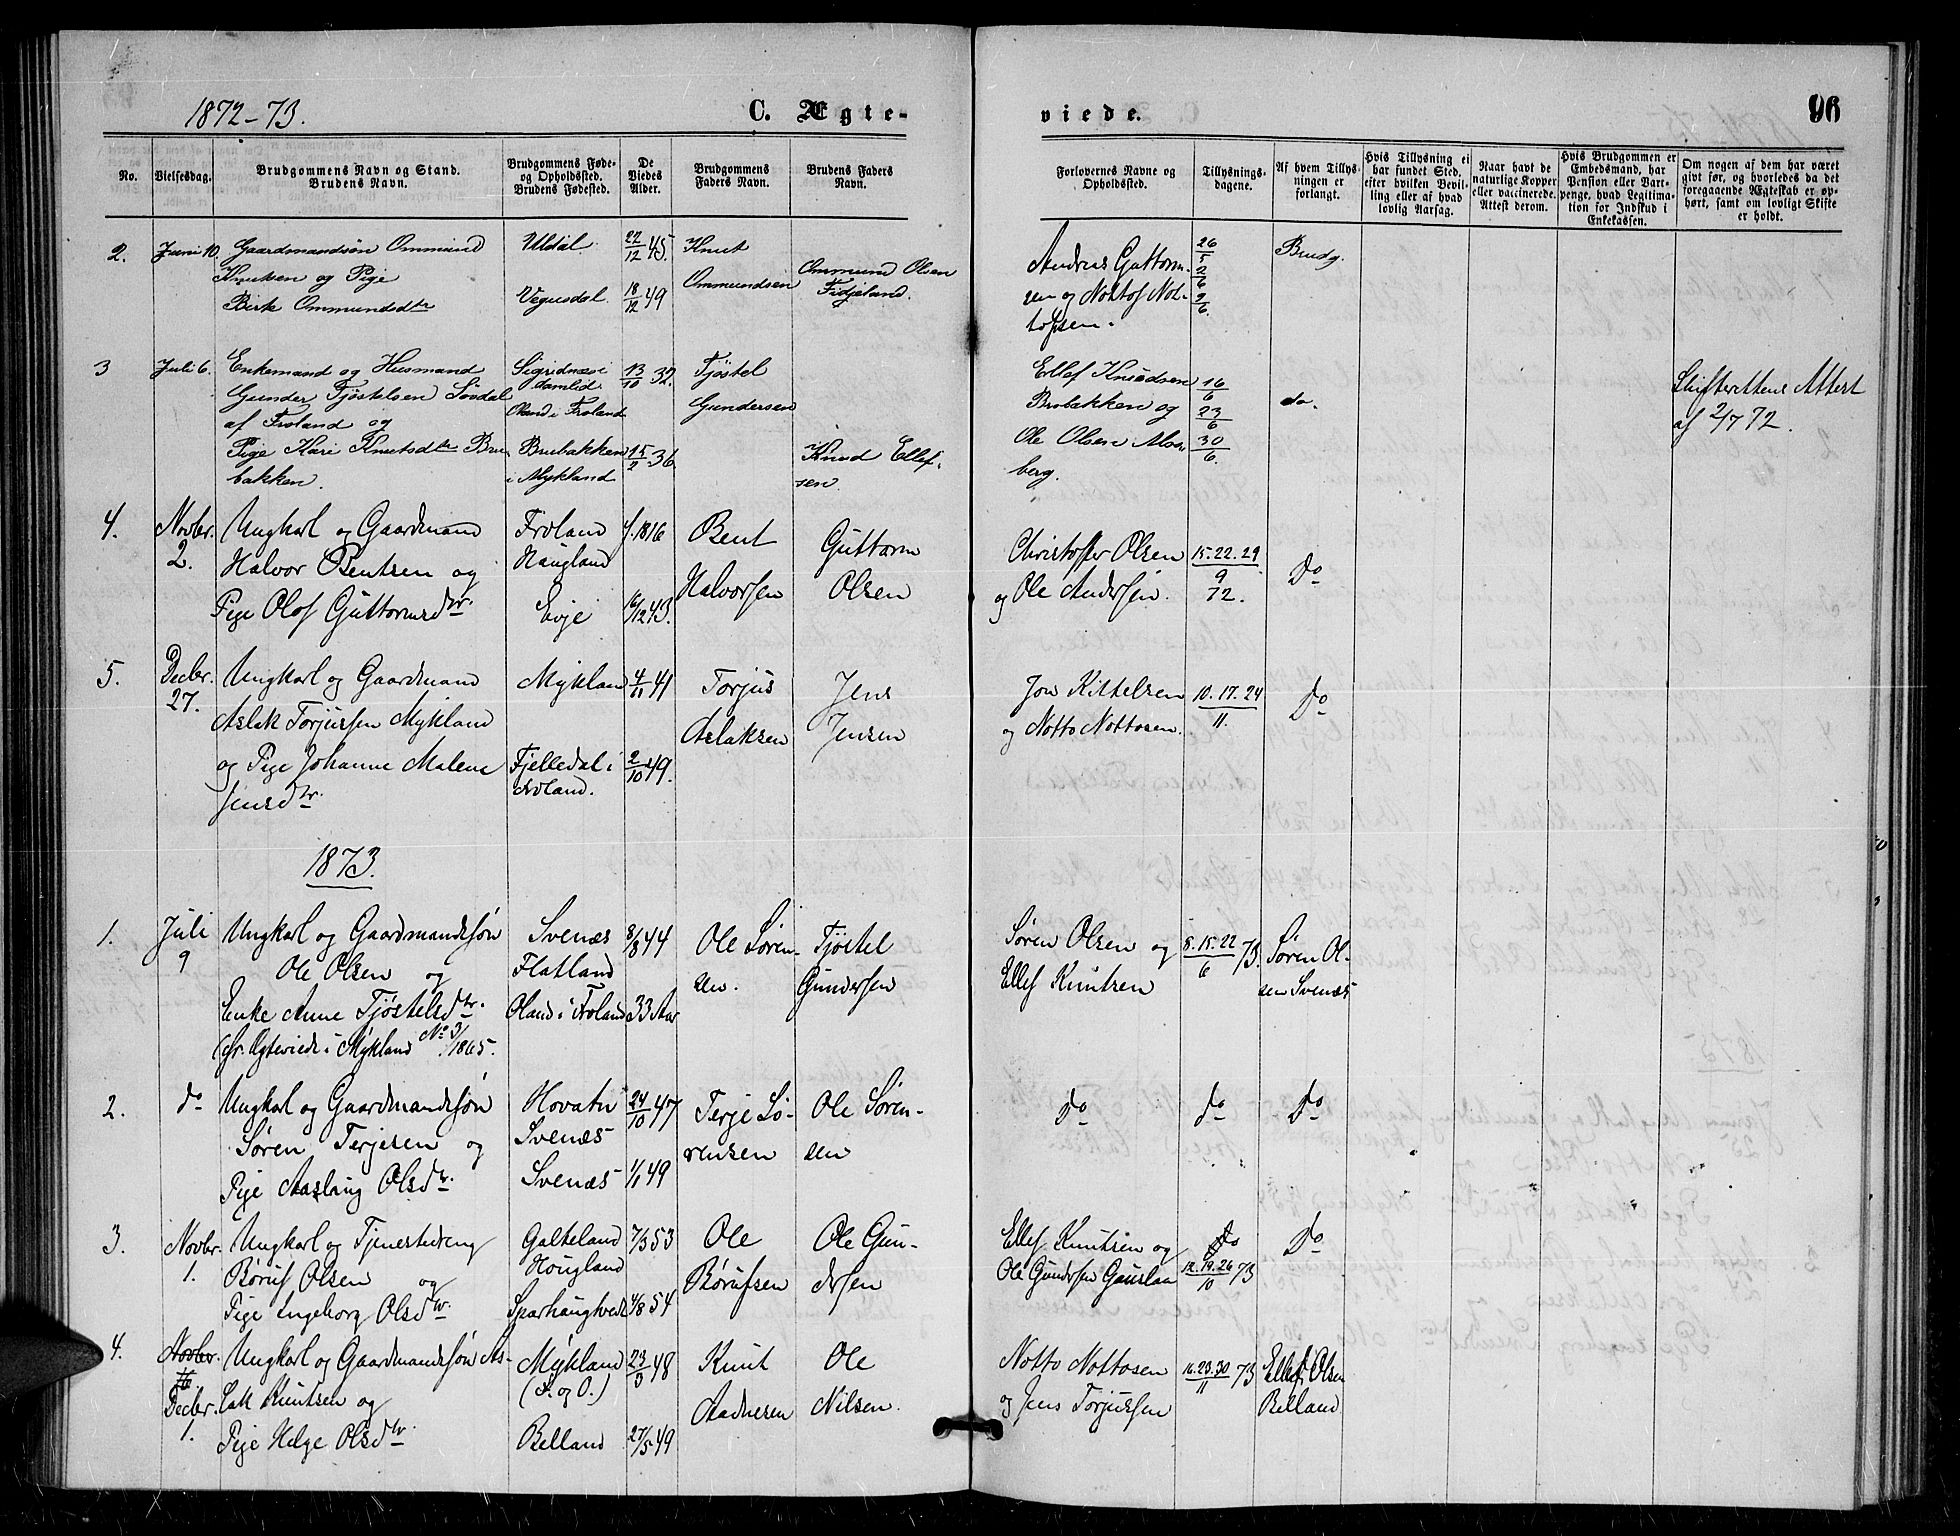 1872-73.
C. Ægte-
viede.
96
No.
Vielsesdag.
Brudgommens Navn og Stand.
Brudens Navn.
Brudgommens Føde-
og Opholdssted.
Brudens Fødested.
De
Viedes
Alder.
Brudgommens
Faders Navn.
Brudens Faders
Navn.
Forlovernes Navne og
Opholdssted.
Tillysnings-
dagene.
Af hvem Tillys-
ningen er
forlangt.
Hvis Tillysning ei
har fundet Sted,
efter hvilken Bevil-
ling eller af hvad
lovlig Aarsag.
Naar havt de
naturlige Kopper
eller vaccinerede.
Attest derom.
Hvis Brudgommen er
Embedsmand, har
Pension eller Vart-
penge, hvad Legitima-
tion for Indskud i
Enkekassen.
Om nogen af dem har været
givt før, og hvorledes da det
foregaaende Ægteskab er op-
hørt, samt om lovligt Skifte
er holdt.
2.
Juni 10.
Gaardmandsøn Ommund
Knutsen og Pige
Birte Ommundsdtr
Uldal.
Vegusdal.
22/12 45.
18/12 49
Knut
Ommundsen
Ommund Olsen
Fidjeland.
Andreas Guttorm-
sen og Nottof Not-
tofsen.
26/5
2/6
9/6.
Brudg.
3
Juli 6.
Enkemand og Husmand
Gunder Tjøstelsen Løvdal
af Froland og
Pige Kari Knutsdtr Bru-
bakken.
Sigridnæs i
Oland i Froland
Brubakken
i Mykland
13/10 32.
15/2 36
Tjøstel
Gundersen
Knud Ellef-
sen.
Ellef Knudsen
Brobakken og
Ole Olsen Mos-
berg.
16/6
23/6
30/6.
do.
Skifterettens Attest
af 2/7 72.
4.
Novbr.
2.
Ungkarl og Gaardmand
Halvor Bentsen og
Pige Olof Guttormsdtr.
Froland
Haugland
Evje
f. 1816
16/12 43.
Bent
Halvorsen
Guttorm
Olsen
Christoffer Olsen
og Ole Andersen.
15.22.29
9
72.
Do
5.
Decbr.
27.
Ungkarl og Gaardmand
Aslak Torjussen Mykland
og Pige Johanne Malene
Jensdtr.
Mykland
Fjelledal i
Froland.
4/11 41
2/10 49.
Torjus
Aslaksen
Jens
Jensen
Jon Kittelsen
og Notto Nottosen.
10.17.24
11.
Do
1873.
1.
Juli
9
Ungkarl og Gaardmandssøn
Ole Olsen og
Enke Anne Tjøstelsdtr.
(cfr. Egteviede i Mykland No 3/1865.
Svenæs
Flatland
Oland i Froland
8/8 44
33 Aar
Ole Søren-
sen.
Tjøstel
Gundersen
Søren Olsen og
Ellef Knutsen
8.15.22
6 73.
Søren Ol-
sen Svenæs
2.
do
Ungkarl og Gaardmandssøn
Søren Terjesen og
Pige Aaslaug Olsdtr.
Hovatn
Svenæs
Svenæs
24/10 47
1/1 49
Terje Sø-
rensen
Ole Søren-
sen
Do
do
Do
3.
Novbr.
1.
Ungkarl og Tjenestedreng
Børuf Olsen og
Pige Ingeborg Olsdtr.
Galteland
Hougland
Sparhaugtvedt
7/3 53
4/8 54
Ole
Børufsen
Ole Gun-
dersen
Ellef Knutsen og
Ole Gundersen Gauslaa
do
12.19.26
10 73
Do
4.
Novbr.
16
Decbr.
1.
Ungkarl og Gaardmandssøn As-
lak Knutsen og
Pige Helge Olsdtr.
Mykland
(F. og O.)
Belland
23/3 48
27/5 49
Knut
Aadnesen
Ole
Nilsen.
Notto Nottosen
og Jens Torjussen
16.23.30
11 73
Ellef Olsen
Belland